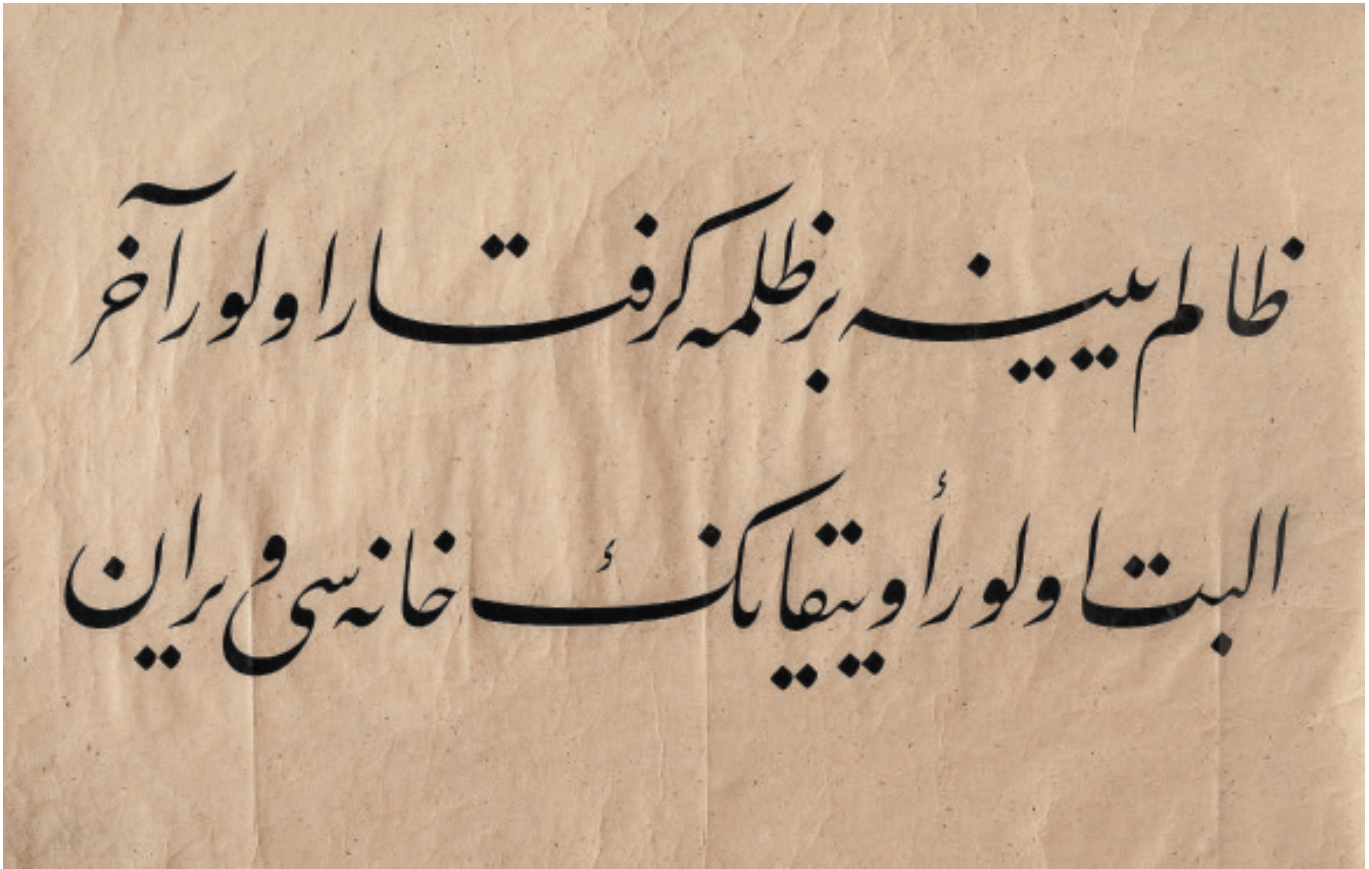 ظالم يينه بر ظلمه كرفتار اولور آخر
البت اولور أو ييقانك خانه سی ویران